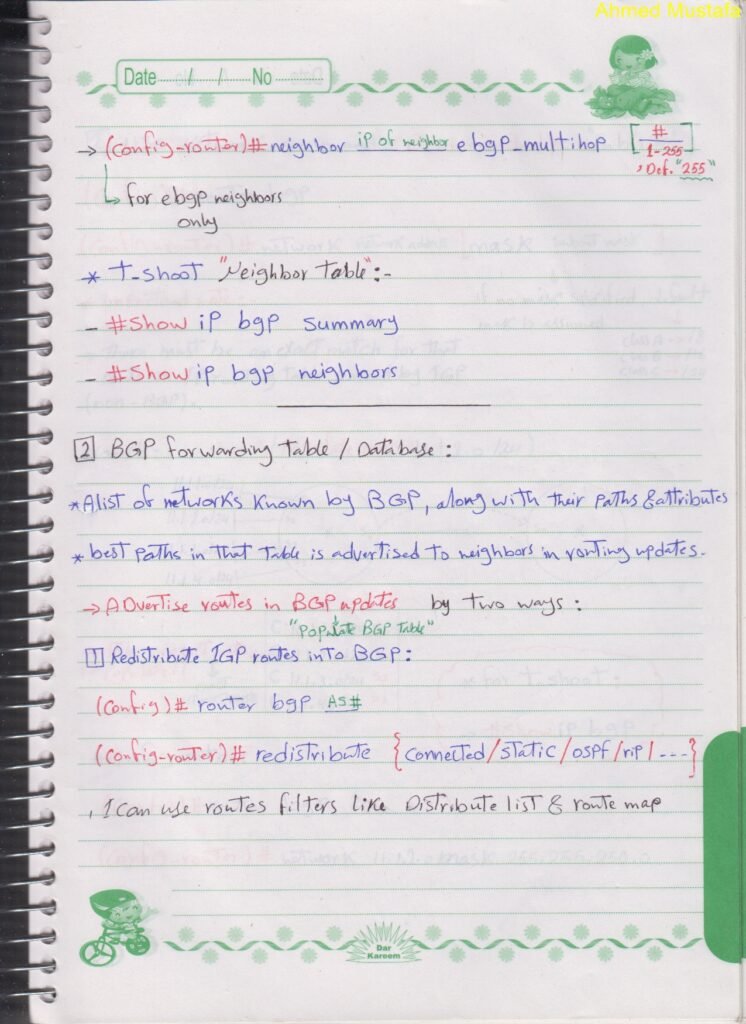 Ahmed Mustafa
Date....../....../...... No
→ (config-router)# neighbor ip of neighbor ebgp_multihop [#
1-255]
, Def. "255"
for ebgp neighbors
only
* T-shoot "Neighbor Table":-
- #Show ip bgp summary
- #Show ip bgp neighbors
2 BGP forwarding Table / Database:
* A list of networks known by BGP, along with their paths & attributes
* best paths in that Table is advertised to neighbors in routing updates.
→ Advertise routes in BGP updates by two ways:
"Populate BGP Table"
1 Redistribute IGP routes into BGP:
(config)# router bgp AS#
(config-router)# redistribute {connected/static/ospf/rip/---}
, I can use routes filters like Distribute list & route map
Dar
Kareem